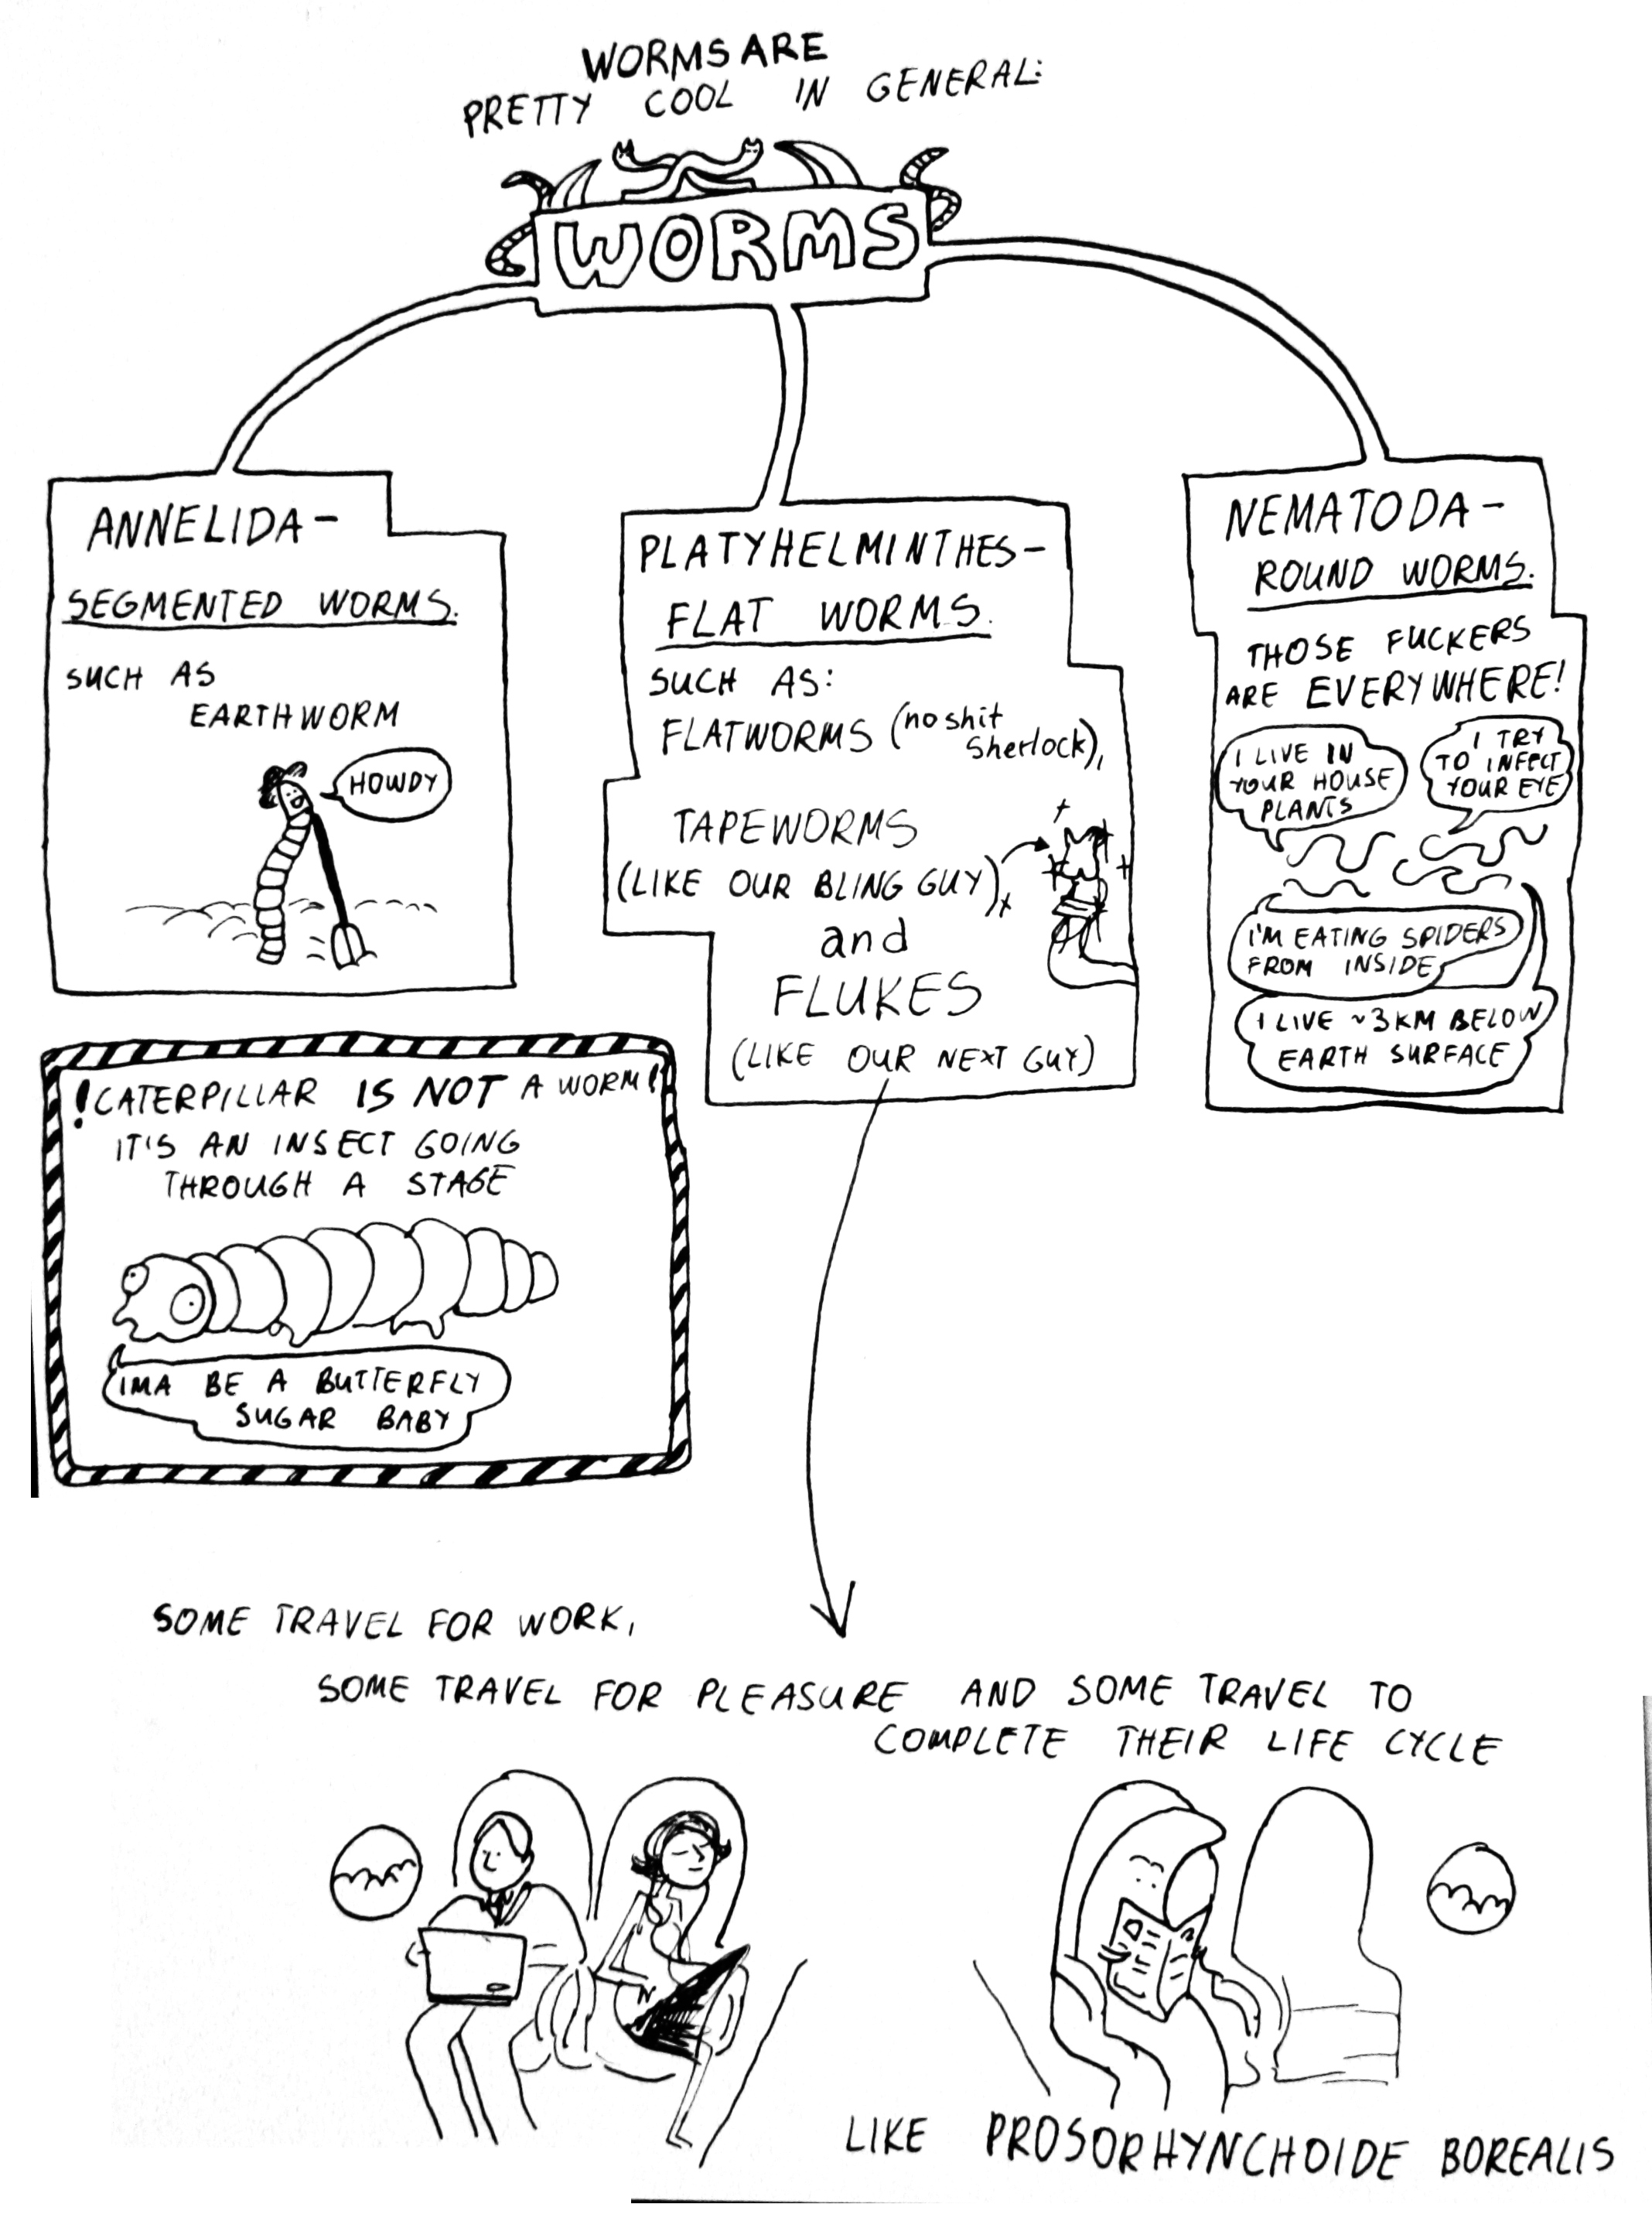 WORMS ARE
PRETTY COOL IN GENERAL:
WORMS
ANNELIDA-
SEGMENTED WORMS.
SUCH AS
EARTHWORM
HOWDY
PLATYHELMINTHES-
FLAT WORMS.
SUCH AS:
FLATWORMS (no shit
Sherlock),
TAPEWORMS
(LIKE OUR BLING GUY),
and
FLUKES
(LIKE OUR NEXT GUY)
NEMATODA-
ROUND WORMS.
THOSE FUCKERS
ARE EVERYWHERE!
I LIVE IN
YOUR HOUSE
PLANTS
I TRY
TO INFECT
YOUR EYE
I'M EATING SPIDERS
FROM INSIDE
I LIVE ~3KM BELOW
EARTH SURFACE
!CATERPILLAR IS NOT A WORM!
IT'S AN INSECT GOING
THROUGH A STAGE
IMA BE A BUTTERFLY
SUGAR BABY
SOME TRAVEL FOR WORK,
SOME TRAVEL FOR PLEASURE AND SOME TRAVEL TO
COMPLETE THEIR LIFE CYCLE
LIKE PROSORHYNCHOIDE BOREALIS